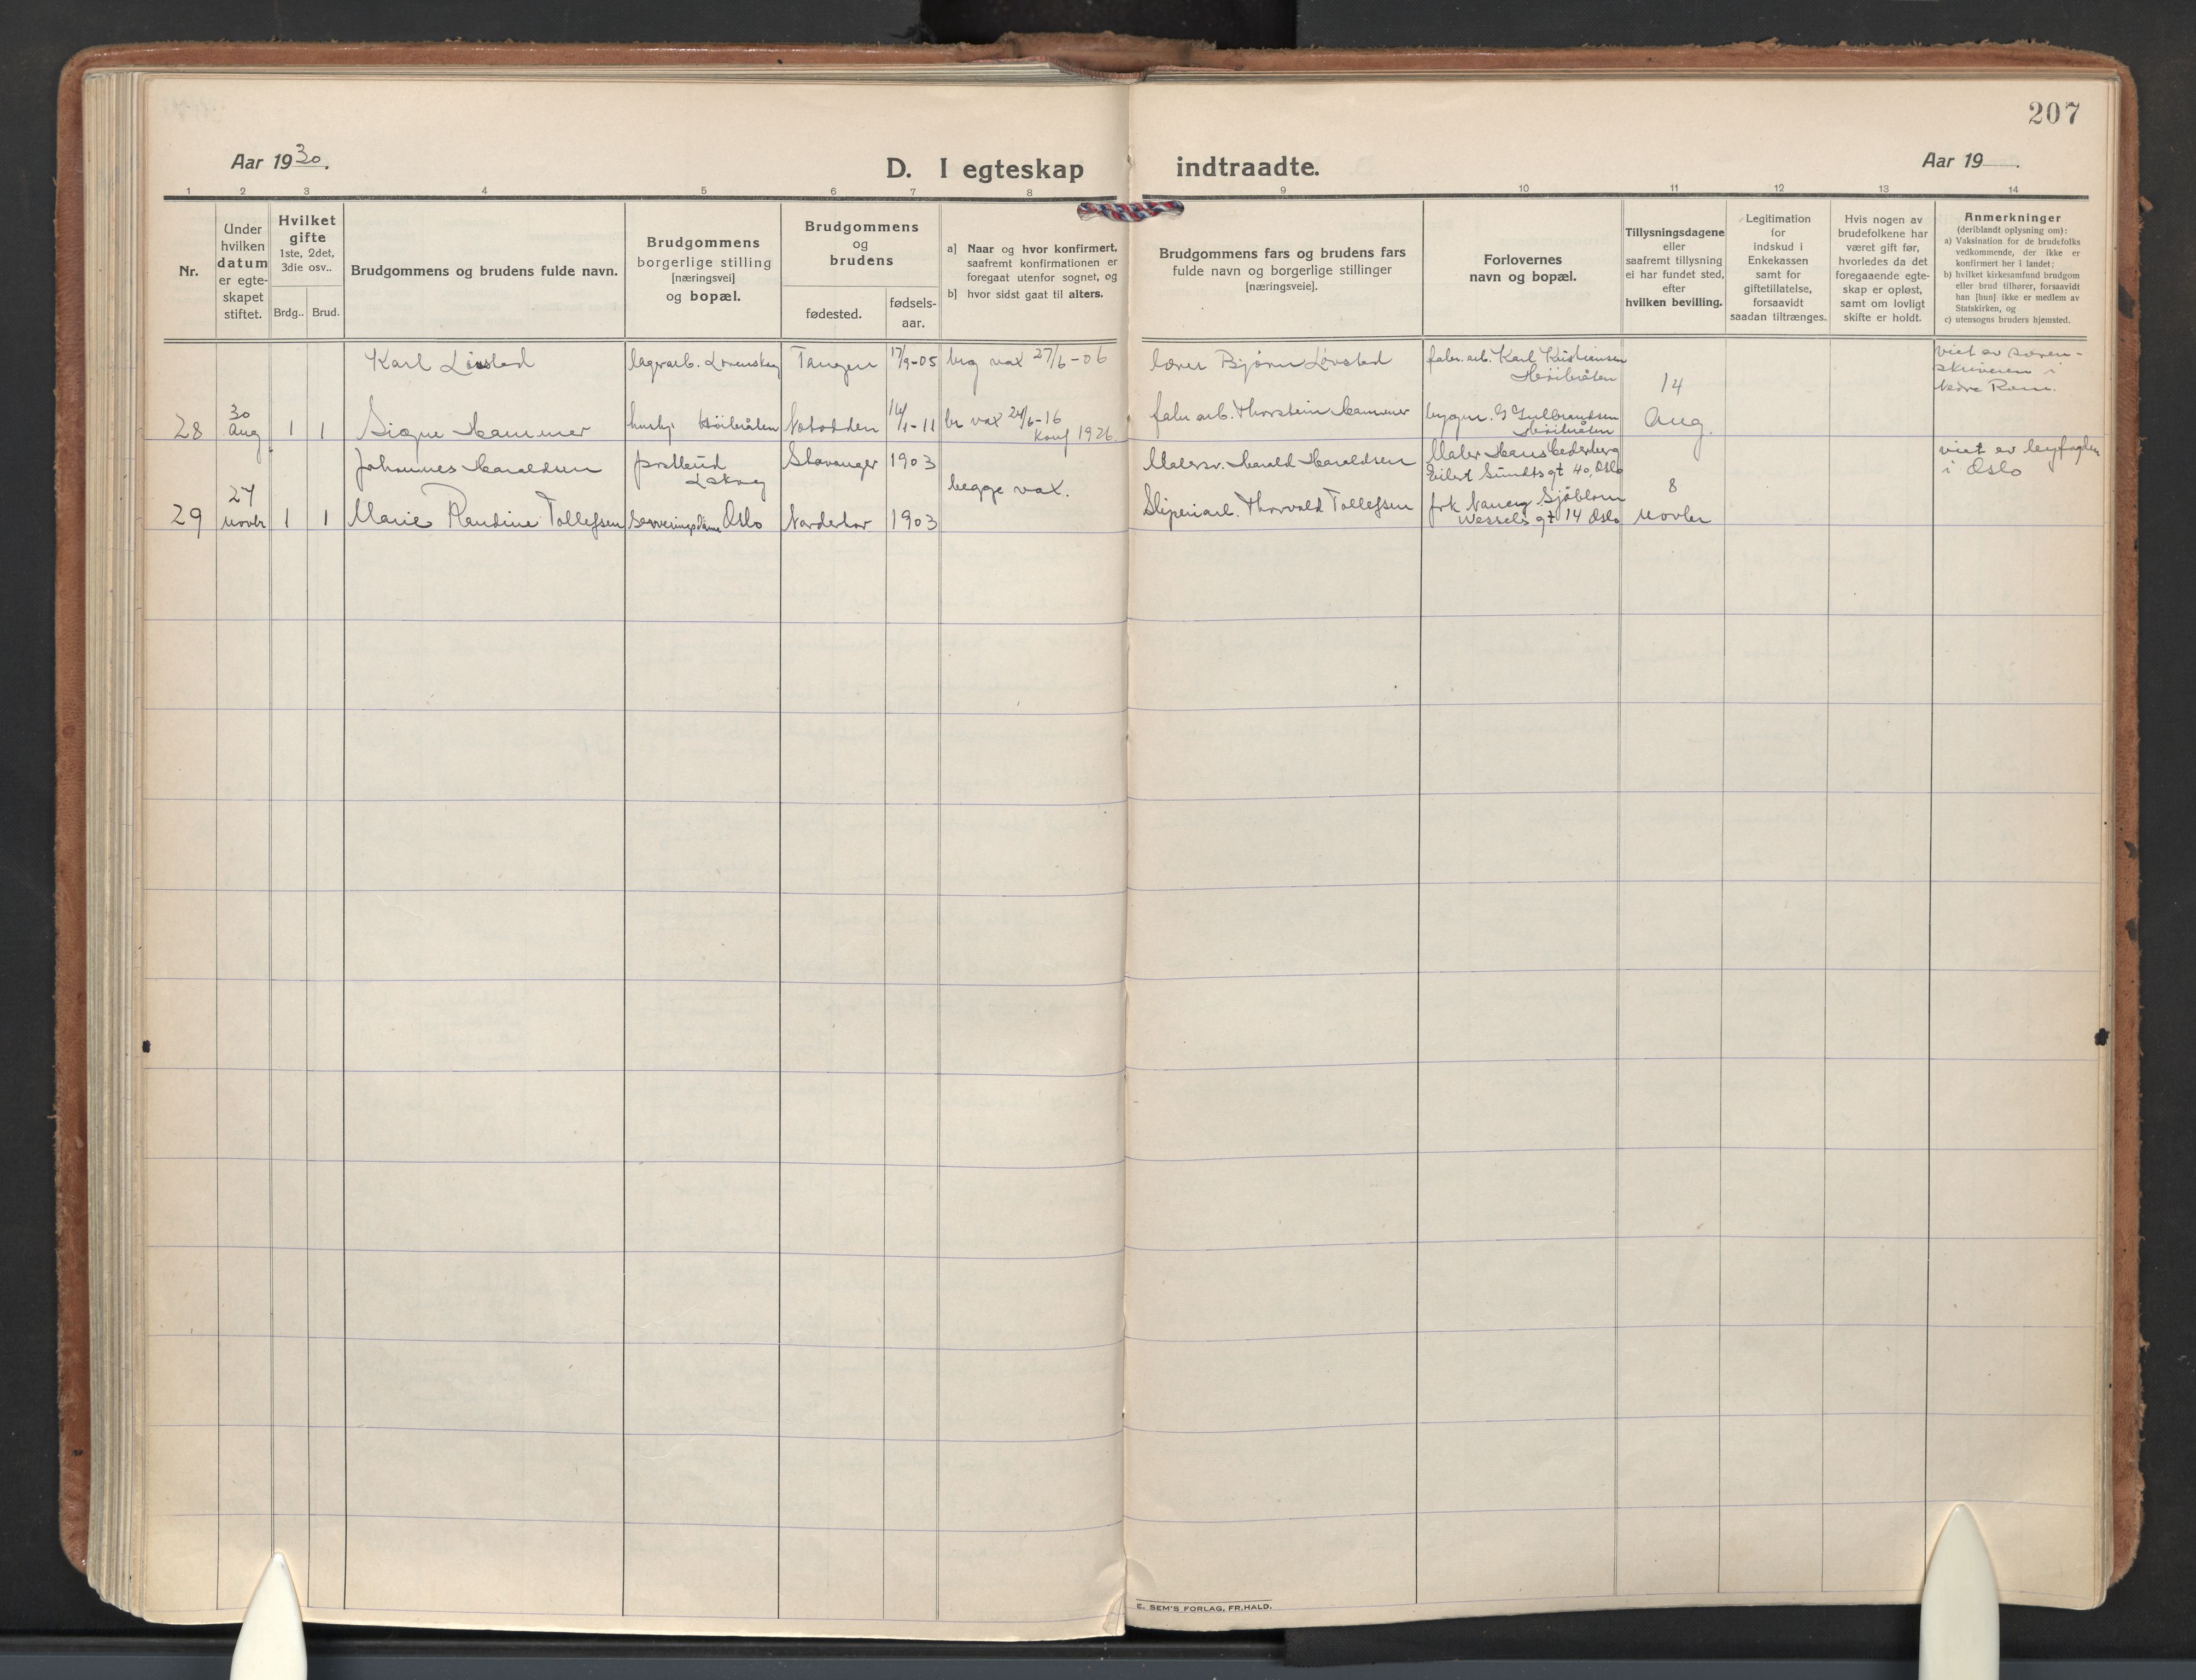 207
Aar 1930.
D. I egteskap indtraadte.
Aar 19 .
1 2 3 4 5 6 7 8 9 10 11 12 13 14
Nr.
Under
hvilken
datum
er egte-
skapet
stiftet.
Hvilket
gifte
1ste, 2det,
3die osv..
Brdg.. Brud.
Brudgommens og brudens fulde navn.
Brudgommens
borgerlige stilling
[næringsvei]
og bopæl.
Brudgommens
og
brudens
fødested.
fødsels-
aar.
a] Naar og hvor konfirmert,
saafremt konfirmationen er
foregaat utenfor sognet, og
b] hvor sidst gaat til alters.
Brudgommens fars og brudens fars
fulde navn og borgerlige stillinger
[næringsveie].
Forlovernes
navn og bopæl.
Tillysningsdagene
eller
saafremt tillysning
ei har fundet sted,
efter
hvilken bevilling.
Legitimation
for
indskud i
Enkekassen
samt for
giftetillatelse,
forsaavidt
saadan tiltrænges.
Hvis nogen av
brudefolkene har
været gift før,
hvorledes da det
foregaaende egte-
skap er opløst,
samt om lovligt
skifte er holdt.
Anmerkninger
(deriblandt oplysning om):
a) Vaksination for de brudefolks
vedkommende, der ikke er
konfirmert her i landet;
b) hvilket kirkesamfund brudgom
eller brud tilhører, forsaavidt
han [hun] ikke er medlem av
Statskirken, og
c) utensogns bruders hjemsted.
28
30
Aug
1 1
Karl Lövsted
lagerarb. Lørenskog
Tangen
17/9-05
beg vax 27/6-06
lærer Bjørn Lövsted
fabr. arb. Karl Kristiansen
Höibråten
14
Aug.
viet av soren-
skriveren i
Nedre Rom.
Signe Hammer
hushj. Höibråten
Notodden
14/1-11
br vax 24/6-16
Konf 1926.
fabr arb. Thorstein Hammer
bygm. G Gulbrandsen
Höibråten
29
27
Novbr
1 1
Johannes Haraldsen
postbud
Lskog
Stavanger
1903
begge vax.
Malersv. Harald Haraldsen
Maler Hans Cederberg
Eilert Sundts gt 40, Oslo
8
Novbr
viet av byfogden
i Oslo
Marie Pandine Tollefsen
Serveringsdame Oslo
Norderhov
1903
Sliperiarb. Thorvald Tollefsen
frk Nancy Sjöblom
Wessels gt 14 Oslo
E. SEM'S FORLAG, FR.HALD.